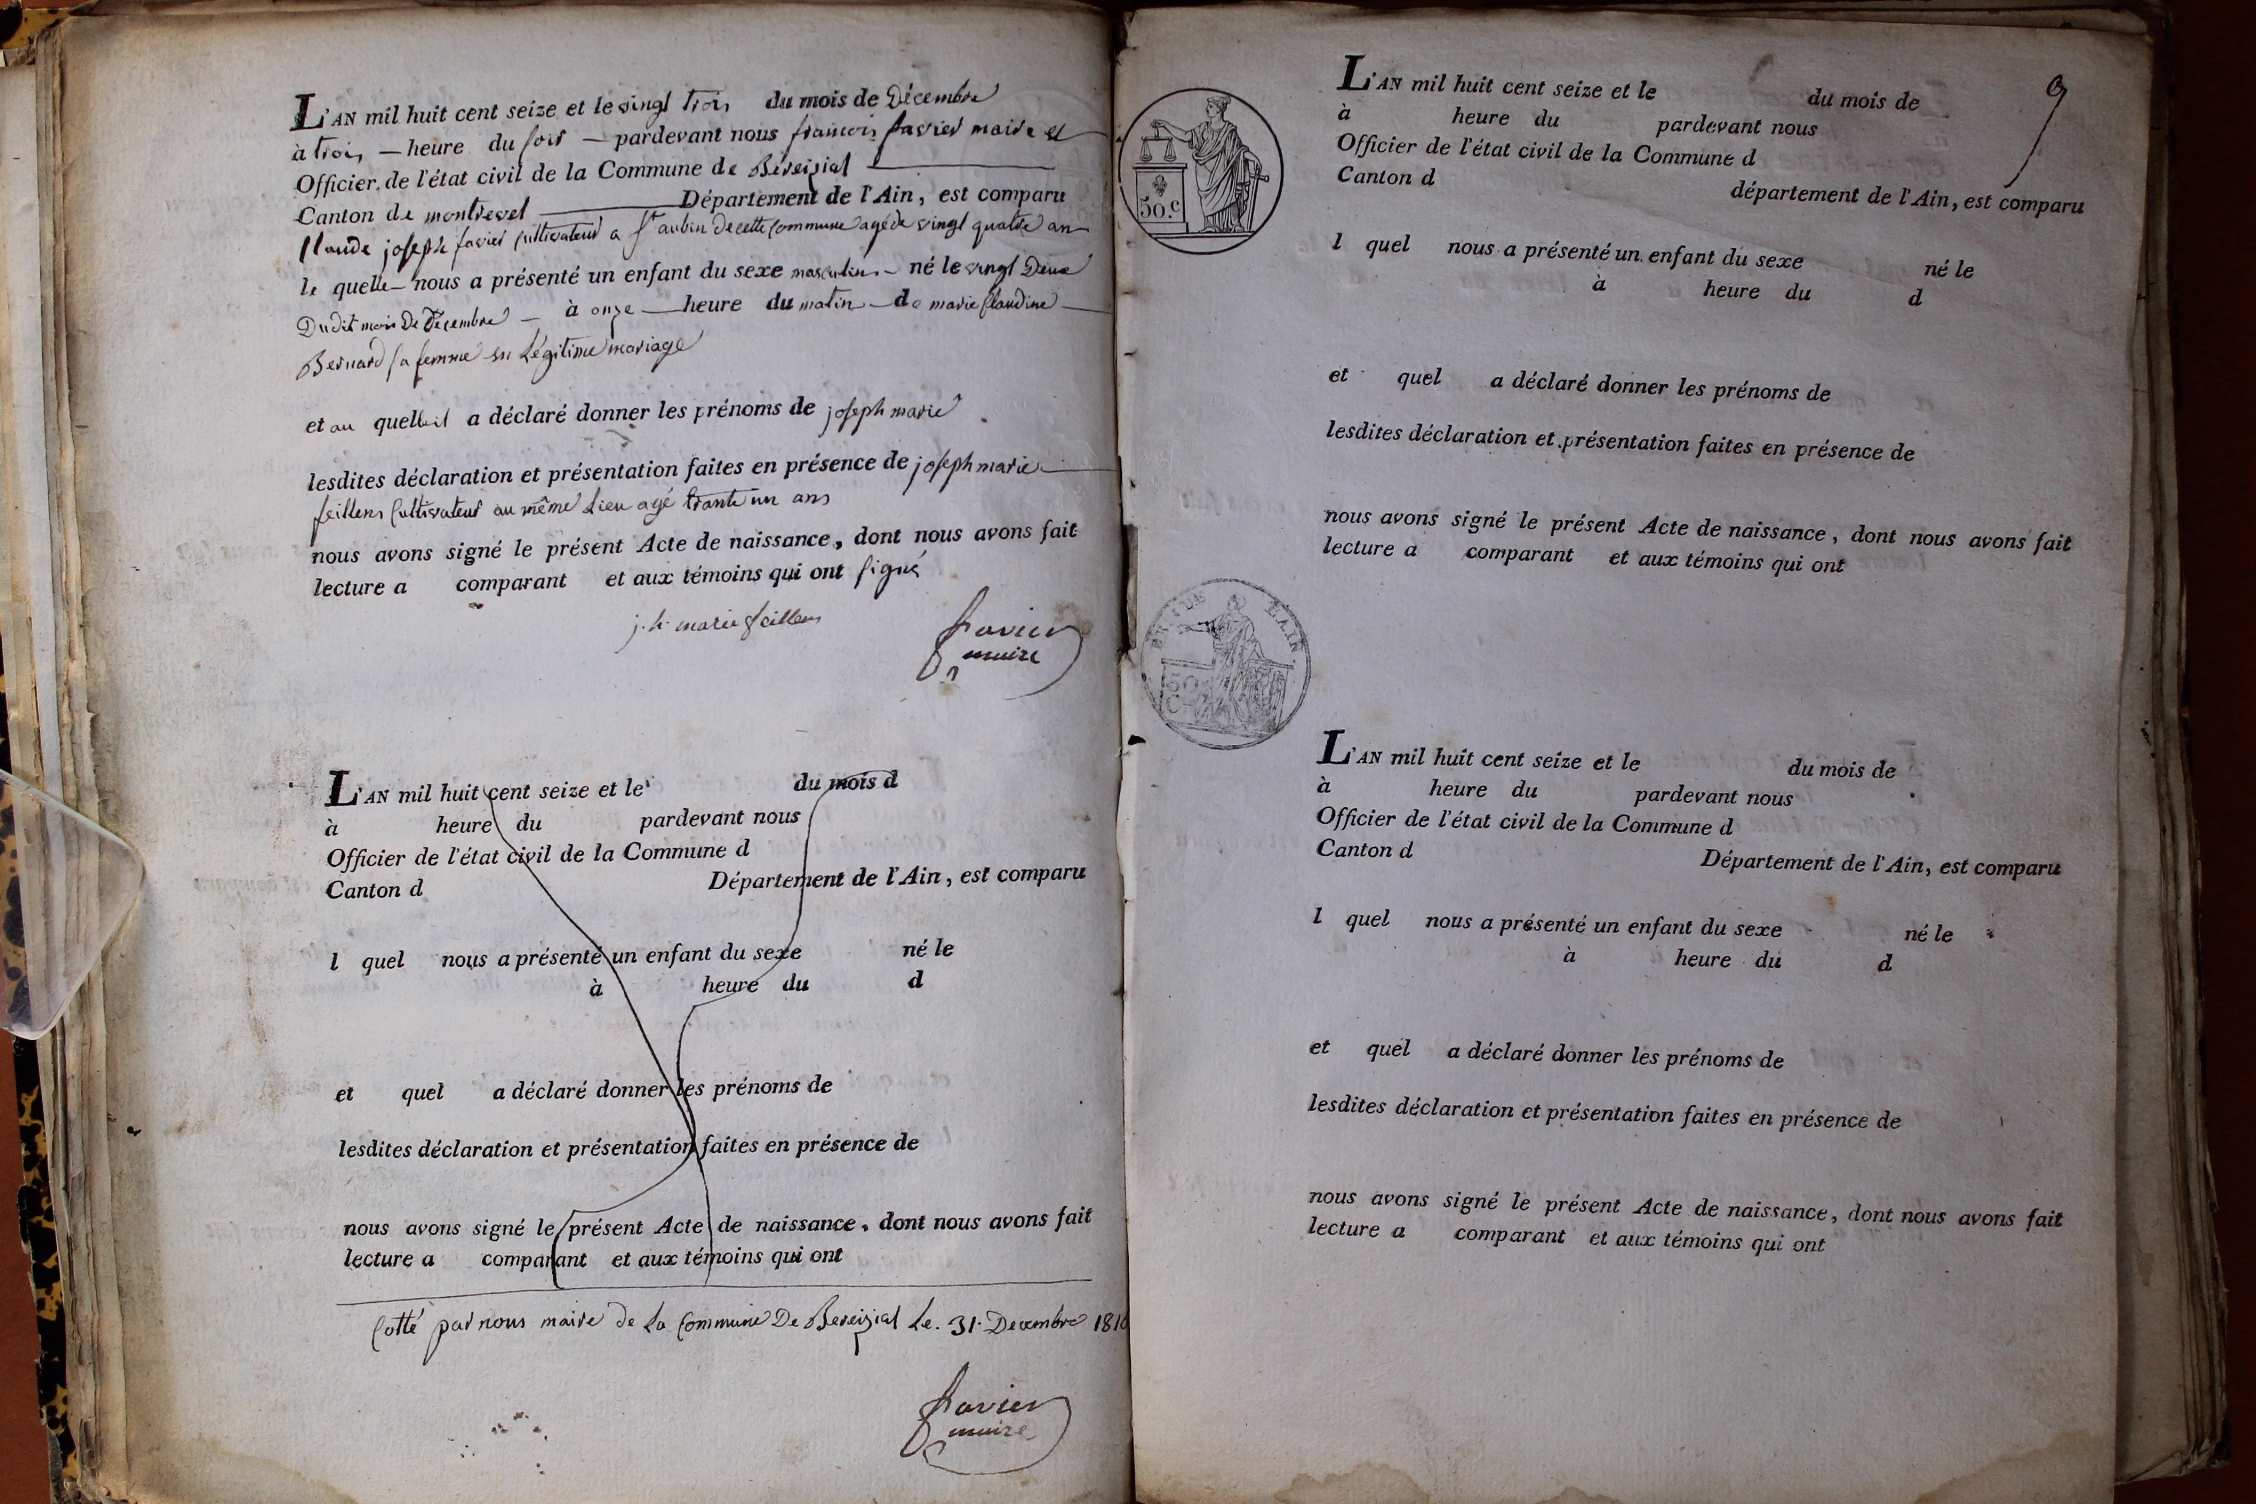 L'AN mil huit cent seize et le vingt trois du mois de Décembre
à trois — heure du soir — pardevant nous francois favier maire et
Officier de l'état civil de la Commune de Béreizial
Canton de montrevel Département de l'Ain, est comparu
Claude joseph favier Cultivateur a St aubin de cette Commune agé de vingt quatre an
le quelle nous a présenté un enfant du sexe masculin né le vingt Deux
Dudit mois De Décembre — à onze — heure du matin — de marie Claudine
Bernard sa femme en Légitime mariage
et au quelle il a déclaré donner les prénoms de joseph marie
lesdites déclaration et présentation faites en présence de joseph marie
feillens Cultivateur au même Lieu agé trante un ans
nous avons signé le présent Acte de naissance, dont nous avons fait
lecture a comparant et aux témoins qui ont signé
j.h. marie feillens
favier
maire
L'AN mil huit cent seize et le du mois d
à heure du pardevant nous
Officier de l'état civil de la Commune d
Canton d Département de l'Ain, est comparu
l quel nous a présenté un enfant du sexe né le
à heure du d
et quel a déclaré donner les prénoms de
lesdites déclaration et présentation faites en présence de
nous avons signé le présent Acte de naissance, dont nous avons fait
lecture a comparant et aux témoins qui ont
Cotté par nous maire de La Commune De Bereizial Le. 31. Decembre 1816
favier
maire
9
50.c
L'AN mil huit cent seize et le du mois de
à heure du pardevant nous
Officier de l'état civil de la Commune d
Canton d département de l'Ain, est comparu
l quel nous a présenté un enfant du sexe né le
à heure du d
et quel a déclaré donner les prénoms de
lesdites déclaration et présentation faites en présence de
nous avons signé le présent Acte de naissance, dont nous avons fait
lecture a comparant et aux témoins qui ont
L'AIN
50
C
L'AN mil huit cent seize et le du mois de
à heure du pardevant nous
Officier de l'état civil de la Commune d
Canton d Département de l'Ain, est comparu
l quel nous a présenté un enfant du sexe né le
à heure du d
et quel a déclaré donner les prénoms de
lesdites déclaration et présentation faites en présence de
nous avons signé le présent Acte de naissance, dont nous avons fait
lecture a comparant et aux témoins qui ont